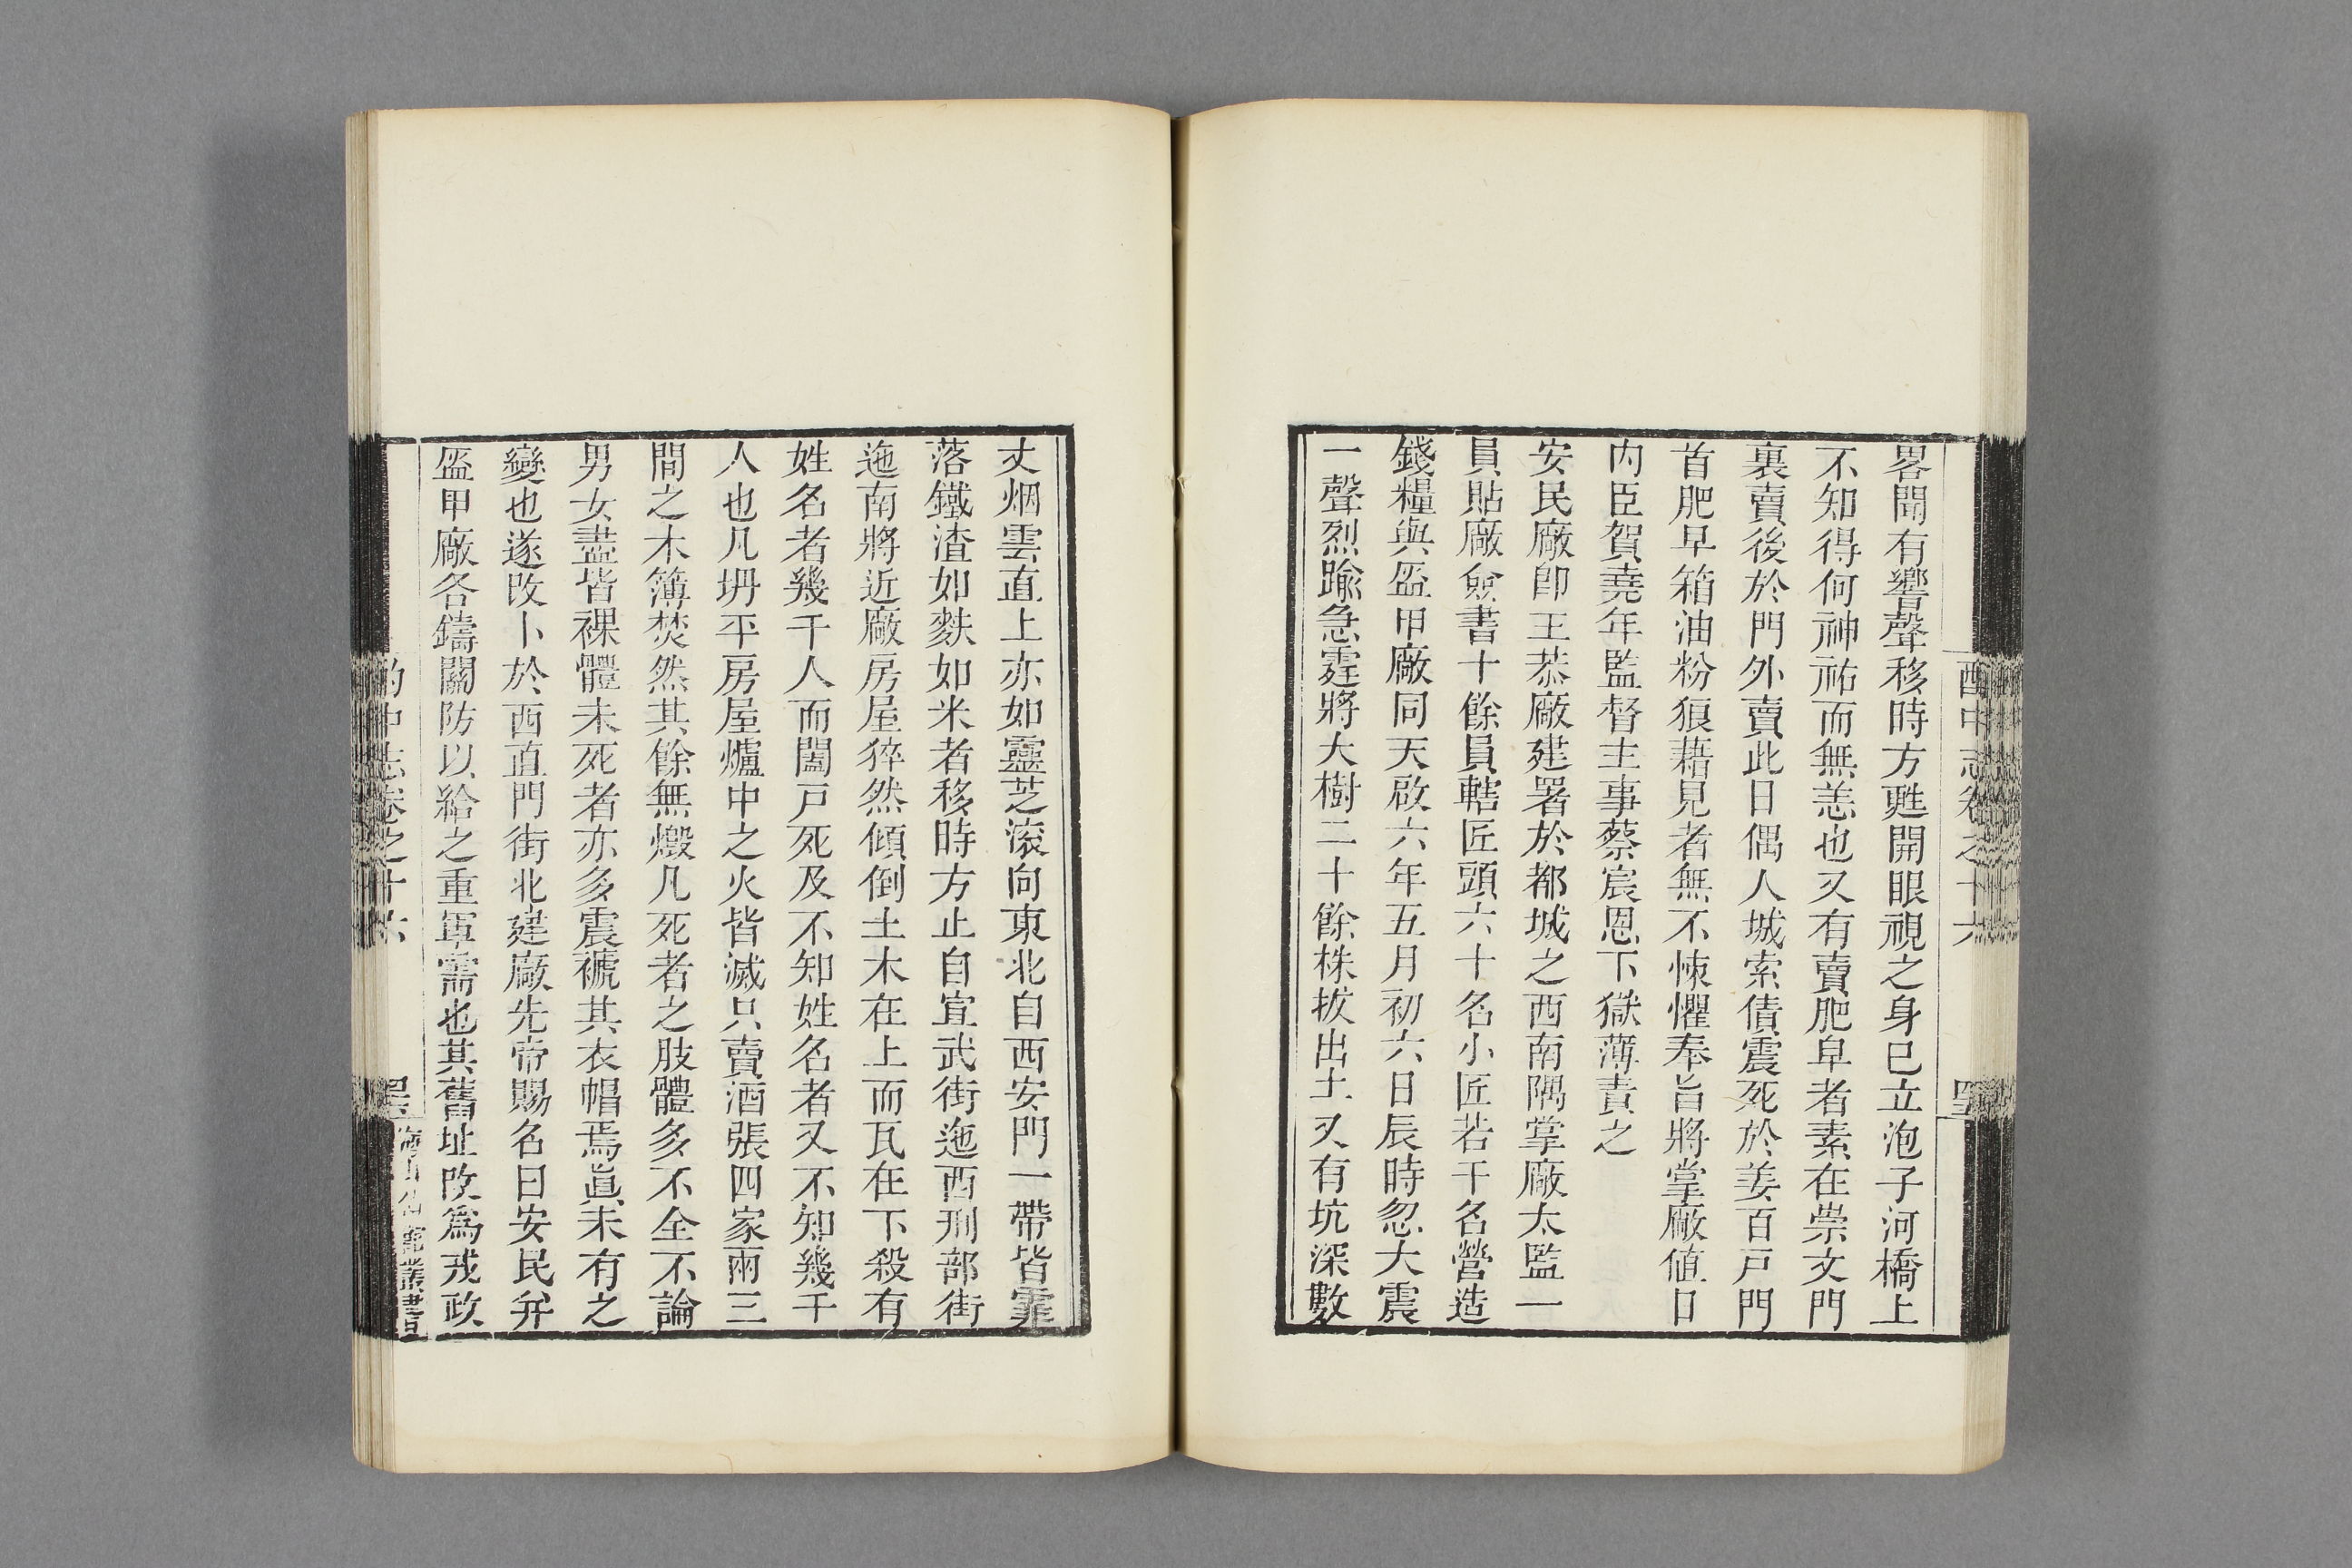 畧聞有響聲移時方甦開眼視之身已立泡子河橋上
不知得何神祐而無恙也又有賣肥皁者素在崇文門
裏賣後於門外賣此日偶人城索債震死於姜百戸門
首肥早箱油粉狼藉見者無不悚懼奉旨將掌廠値日
内臣賀堯年監督主事蔡宸恩下獄薄責之
安民廠卽王恭廠建署於都城之西南隅掌廠太監一
員貼廠僉書十餘員轄匠頭六十名小匠若干名營造
錢糧與盔甲廠同天啟六年五月初六日辰時忽大震
一聲烈踰急霆將大樹二十餘株拔出土又有坑深數
丈烟雲直上亦如靈芝滾向東北自西安門一帶皆霏
落鐵渣如麩如米者移時方止自宣武街迤西刑部街
迤南將近廠房屋猝然傾倒土木在上而瓦在下殺有
姓名者幾千人而闔戸死及不知姓名者又不知幾千
人也凡坍平房屋爐中之火皆滅只賣酒張四家兩三
間之木簿焚然其餘無燬凡死者之肢體多不全不論
男女盡皆裸體未死者亦多震褫其衣帽焉眞未有之
變也遂改卜於西直門街北建廠先帝賜名曰安民并
盔甲廠各鑄關防以給之重軍需也其舊址改爲戎政
酌中志卷之十六